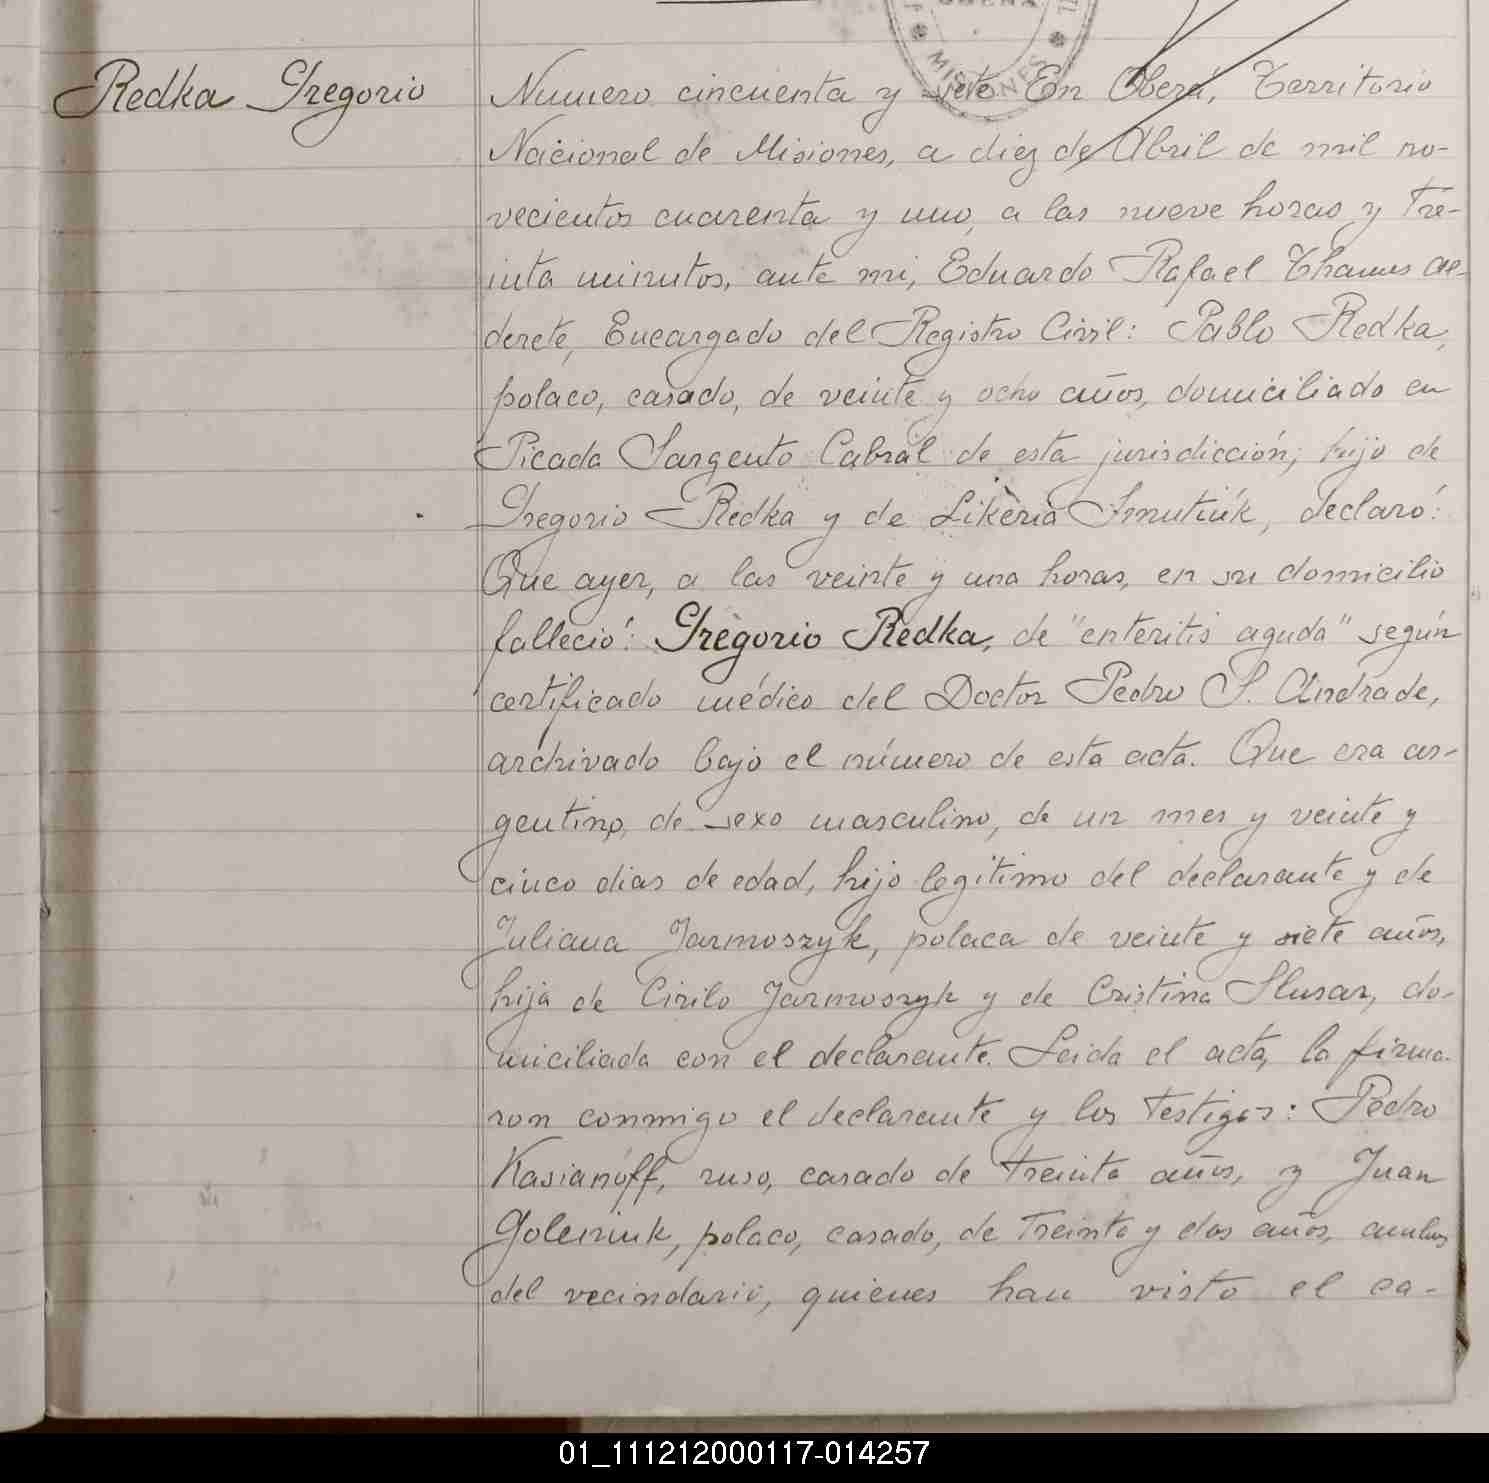 OBERÁ
MISIONES
Redka Gregorio
Numero cincuenta y siete En Oberá, Territorio
Nacional de Misiones, a diez de Abril de mil no-
vecientos cuarenta y uno, a las nueve horas y tre-
inta minutos, ante mi, Eduardo Rafael Thames Al-
derete, Encargado del Registro Civil: Pablo Redka,
polaco, casado, de veinte y ocho años, domiciliado en
Picada Sargento Cabral de esta jurisdicción, hijo de
Gregorio Redka y de Likeria Smutiuk, declaró:
Que ayer, a las veinte y una horas, en su domicilio
falleció: Gregorio Redka, de "enteritis aguda" según
certificado médico del Doctor Pedro S. Andrade,
archivado bajo el número de esta acta. Que era ar-
gentino, de sexo masculino, de un mes y veinte y
cinco dias de edad, hijo legitimo del declarante y de
Juliana Jarmoszyk, polaca de veinte y siete años,
hija de Cirilo Jarmoszyk y de Cristina Slusar, do-
miciliada con el declarante. Leida el acta, la firma-
ron conmigo el declarante y los testigos: Pedro
Kasianoff, ruso, casado de treinta años, y Juan
Goleniuk, polaco, casado, de treinta y dos años, ambos
del vecindario, quienes han visto el ca-
01_111212000117-014257